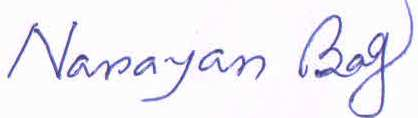 Narayan Bag